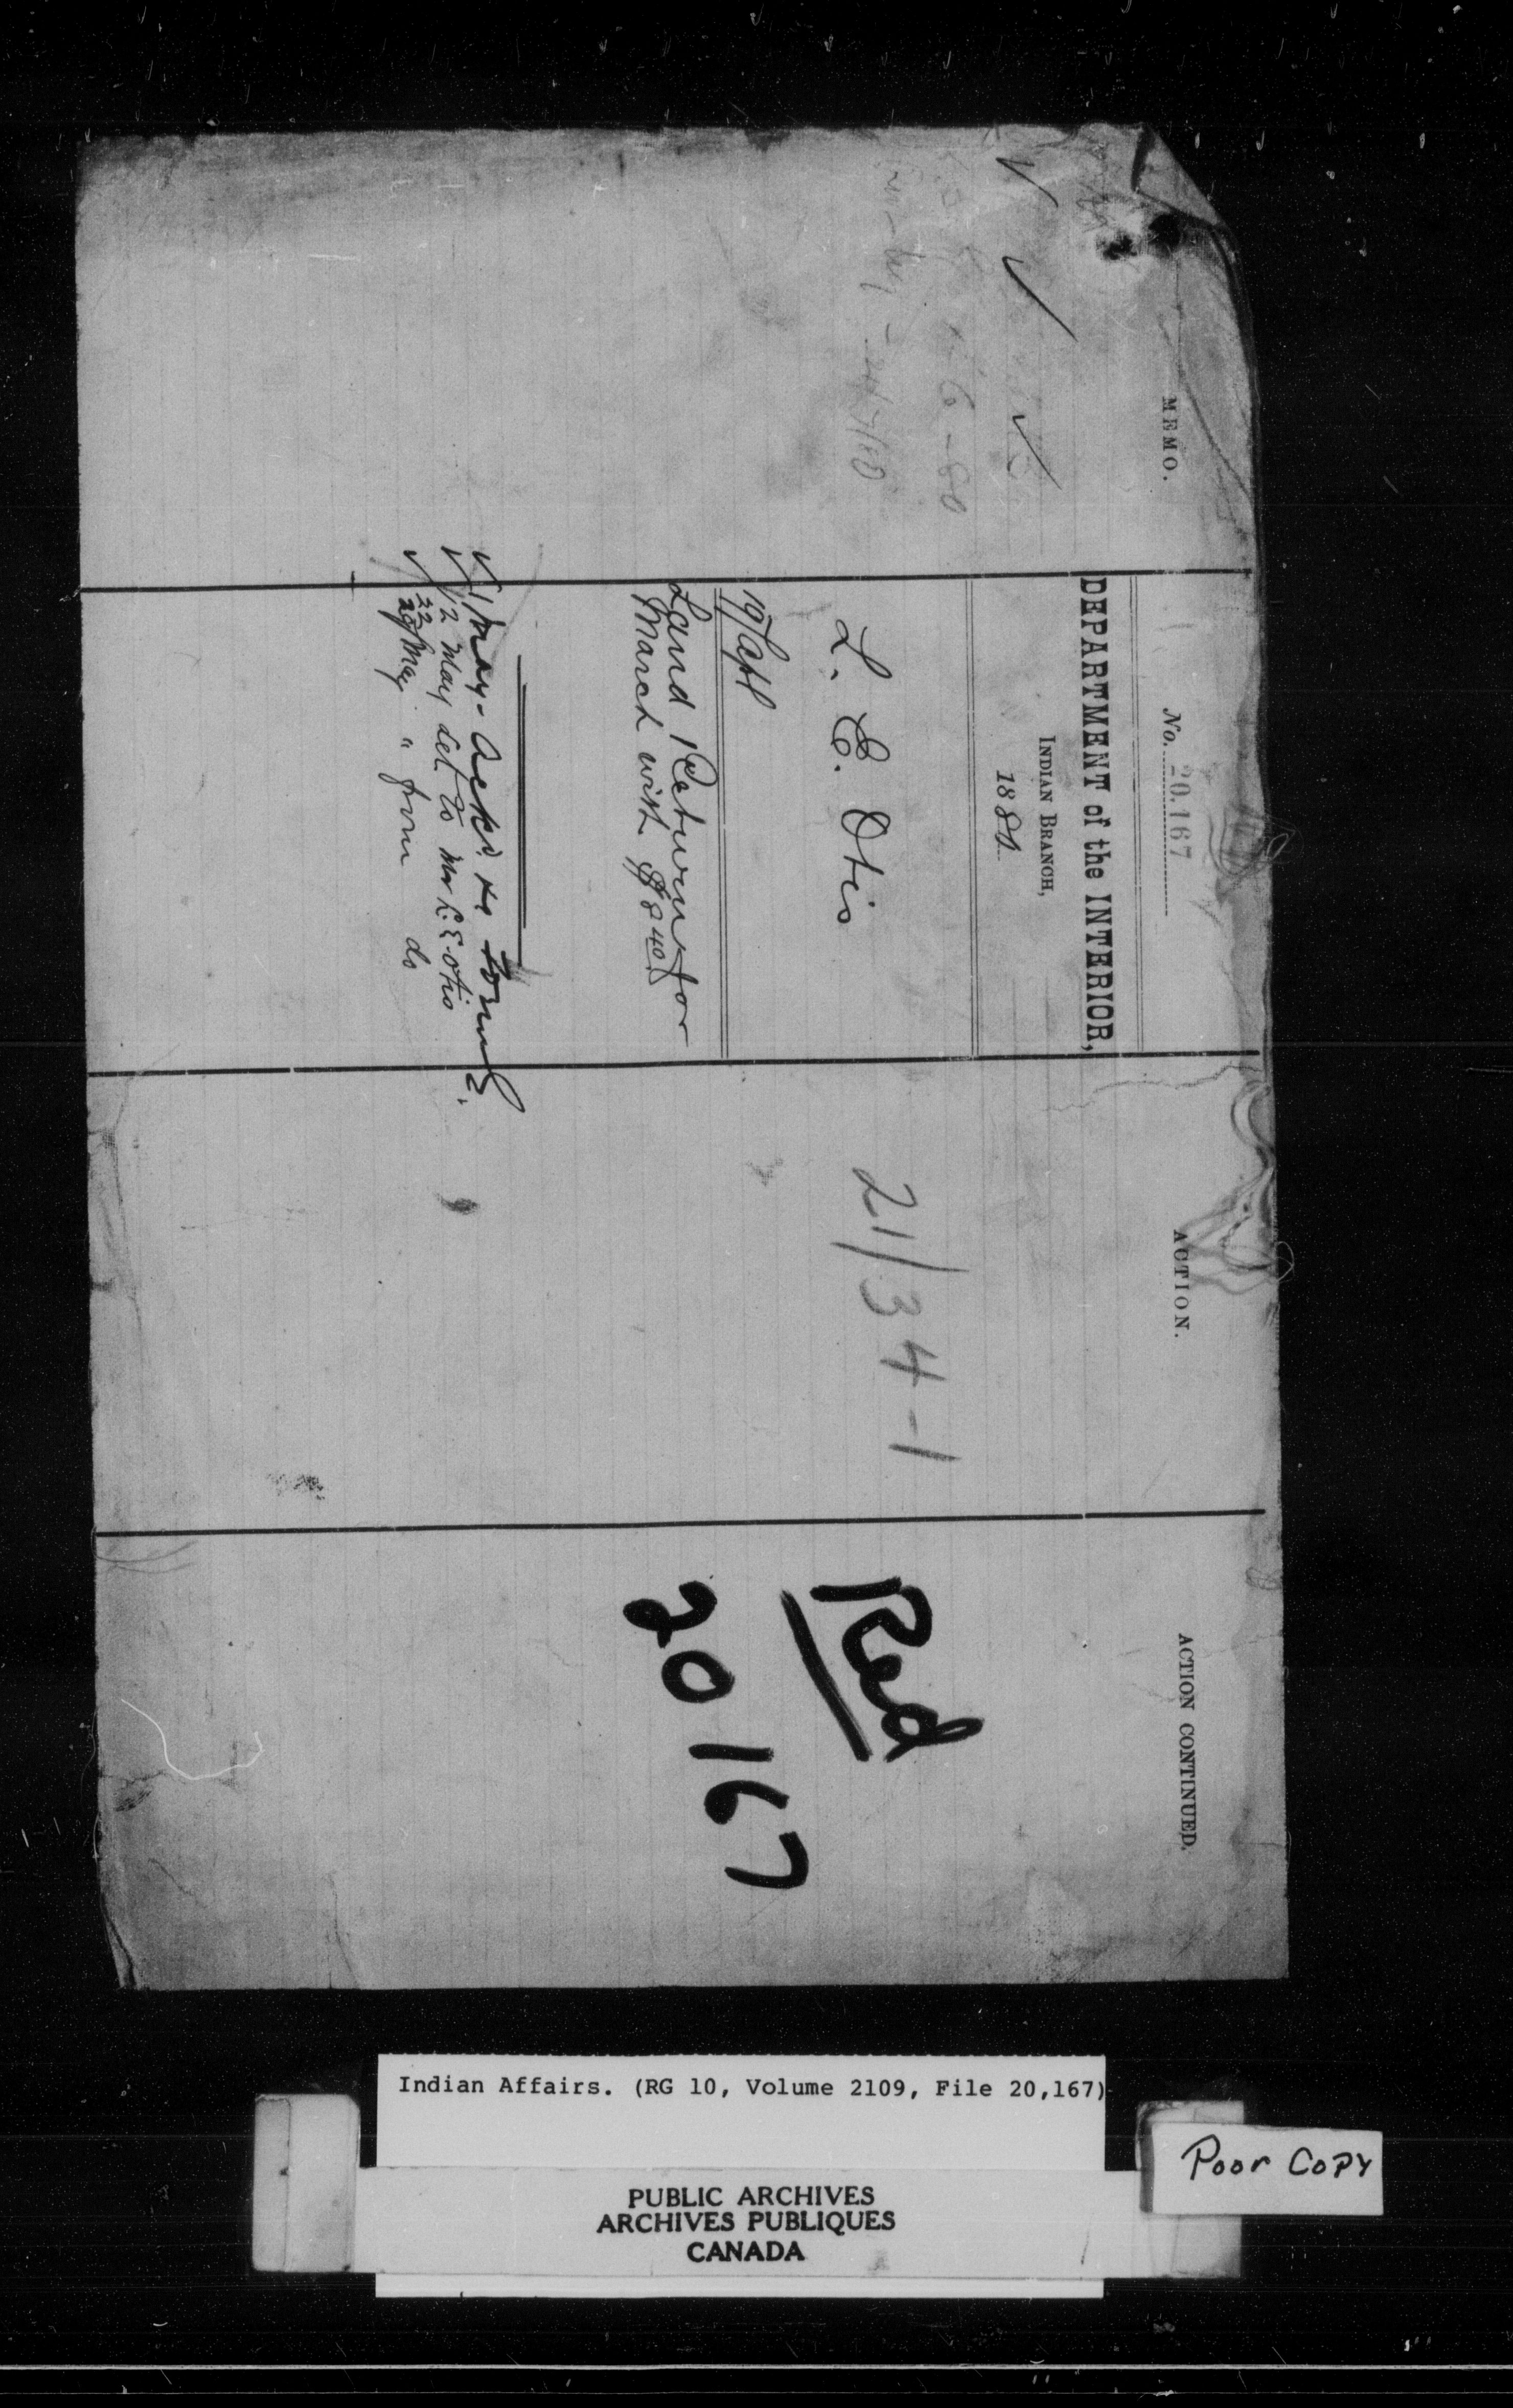 MEMO.
No. 20,167
DEPARTMENT of the INTERIOR,
INDIAN BRANCH,
1880
L. E. Otis
19/Apl
Land Return for
March with $840
1 May - Ackd. re
12 May let to Mr L. E. Otis
22/29 May " from do
ACTION.
21/34-1
ACTION CONTINUED.
Red
20167
Indian Affairs. (RG 10, Volume 2109, File 20,167)
PUBLIC ARCHIVES
ARCHIVES PUBLIQUES
CANADA
Poor Copy